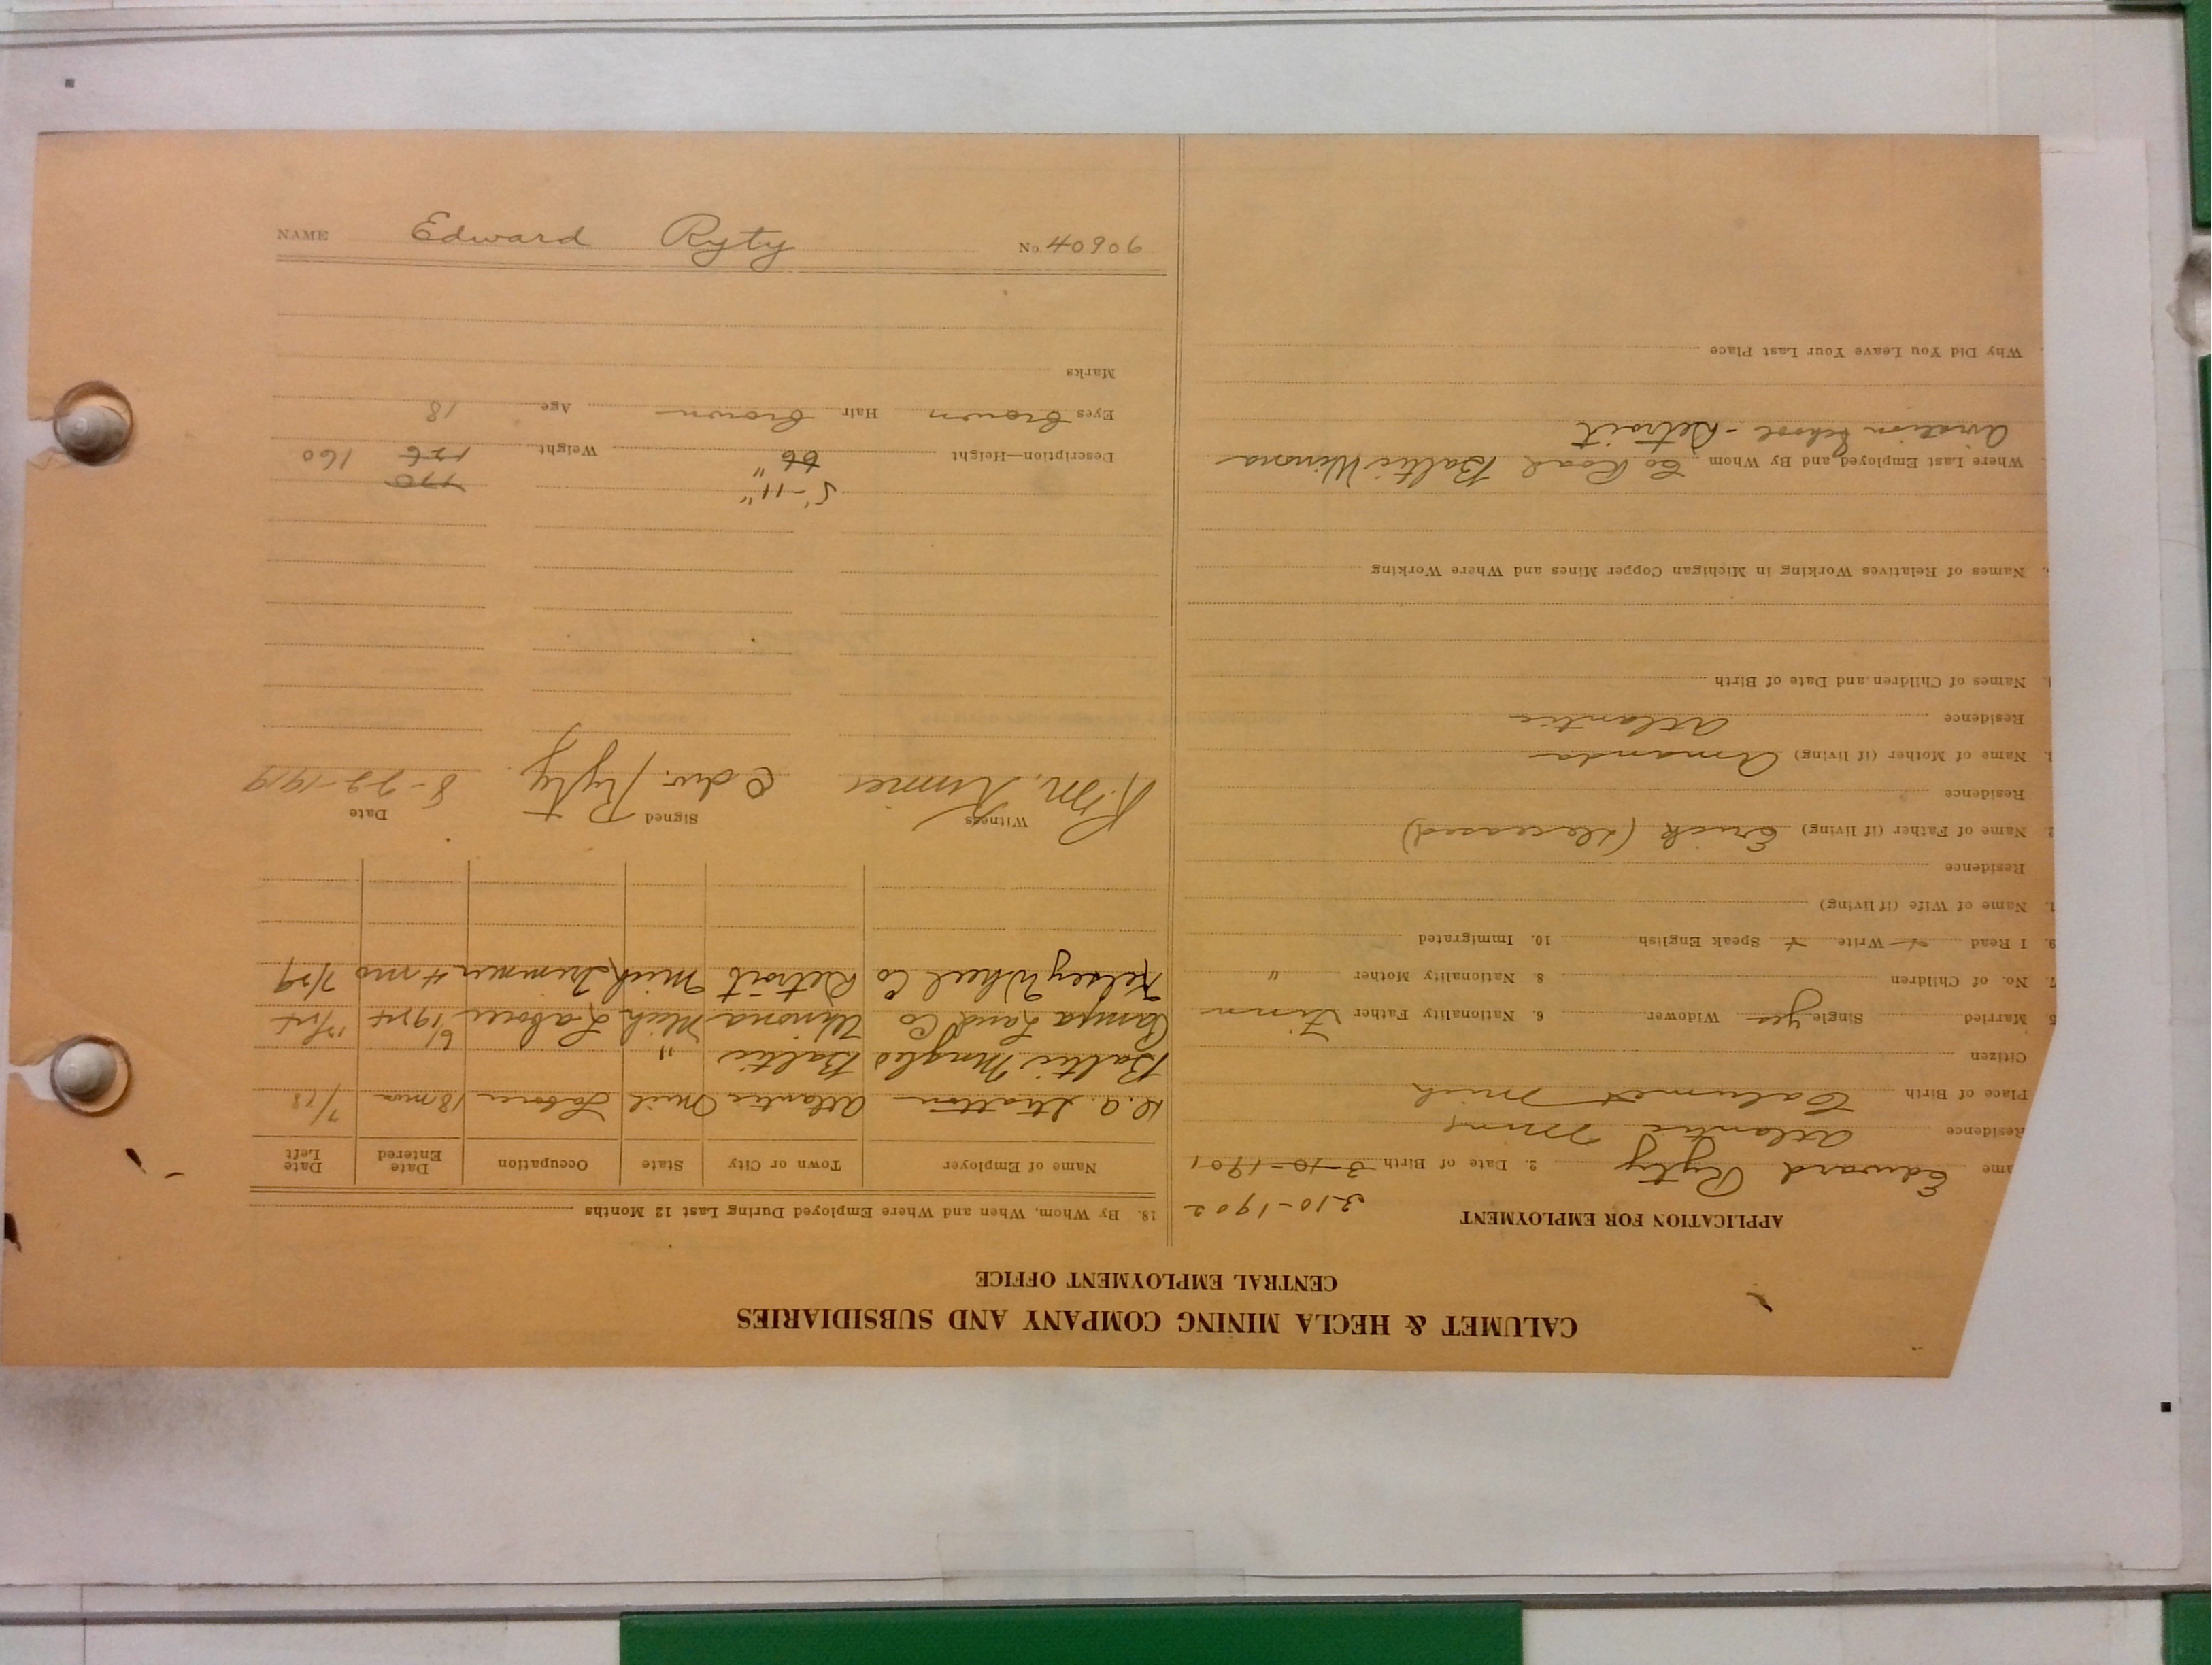 NAME Edward Ryty No. 40906
CALUMET & HECLA MINING COMPANY AND SUBSIDIARIES
CENTRAL EMPLOYMENT OFFICE
APPLICATION FOR EMPLOYMENT
3-10-1902
ame Edward Ryty 2. Date of Birth 3-10-1901
Residence Atlantic Mine
Place of Birth Calumet Mich
Citizen
5. Married Single yes Widower 6. Nationality Father Finn
7. No. of Children 8. Nationality Mother "
9. I Read + Write + Speak English 10. Immigrated
1. Name of Wife (if living)
Residence
2. Name of Father (if living) Erick (deceased)
Residence
3. Name of Mother (if living) Amanda
Residence Atlantic
4. Names of Children and Date of Birth
Names of Relatives Working in Michigan Copper Mines and Where Working
Where Last Employed and By Whom Co Road Baltic Winona
Aviation School - Detroit
Why Did You Leave Your Last Place
18. By Whom, When and Where Employed During Last 12 Months
Name of Employer Town or City State Occupation Date Entered Date Left
Atlantic Mich Laborer 18 mos
Baltic Baltic "
Land Co Winona Mich Laborer
Kelsey Wheel Co Detroit Mich Trimmer 4 mo 7/29
Witness Signed Date
R.M. Edw. Ryty
5'-11" 170
Description—Height 66" Weight 156 160
Eyes Brown Hair Brown Age 18
Marks